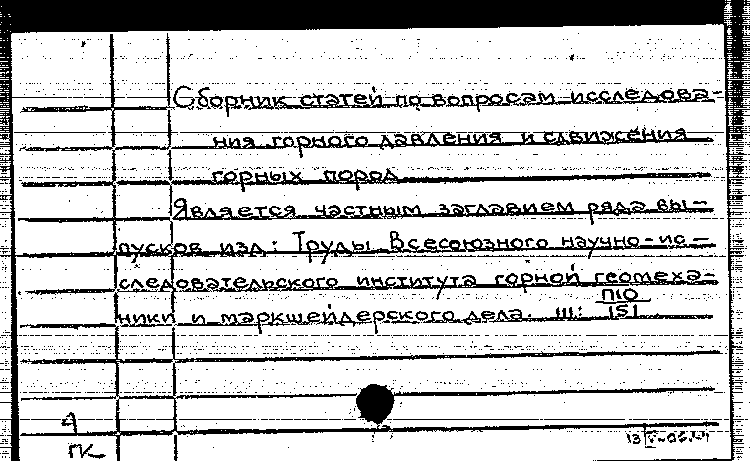 Сборник статей по вопросам исследова-
ния горного давления и сдвижения
горных пород
Является частным заглавием ряда вы-
пусков изд: Труды Всесоюзного научно-ис-
следовательского института горной геомеха-
ники и маркшейдерского дела. Ш: П10/151
ГК
13